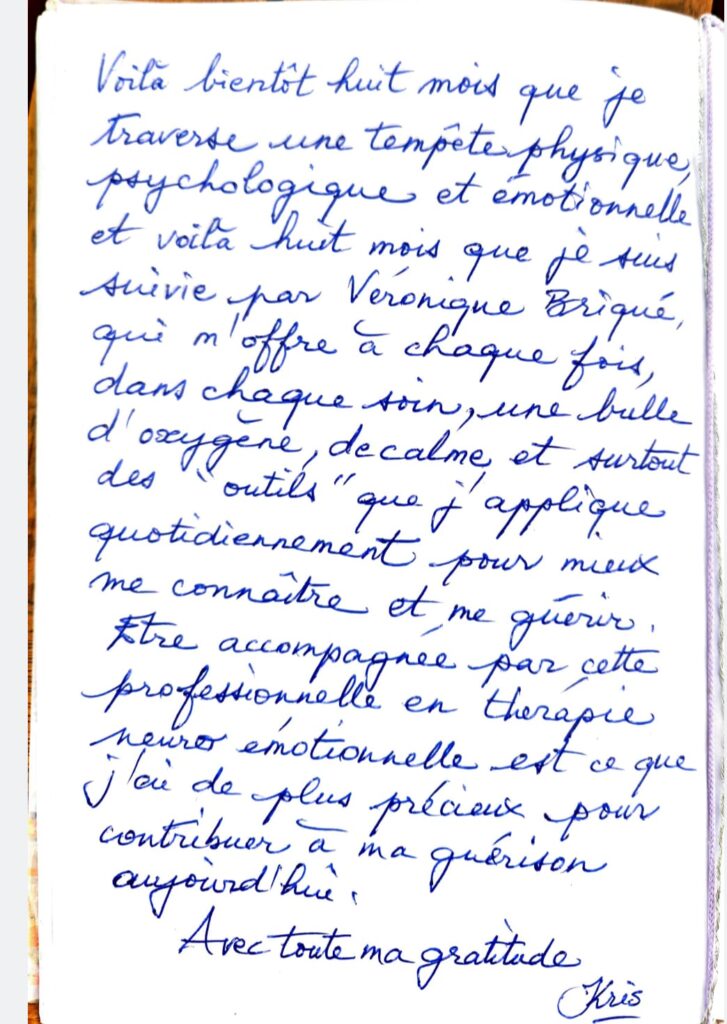 Voilà bientôt huit mois que je
traverse une tempête physique,
psychologique et émotionnelle
et voilà huit mois que je suis
suivie par Véronique Briqué,
qui m'offre à chaque fois,
dans chaque soin, une bulle
d'oxygène, de calme, et surtout
des "outils" que j'applique
quotidiennement pour mieux
me connaître et me guérir.
Etre accompagnée par cette
professionnelle en thérapie
neuro émotionnelle est ce que
j'ai de plus précieux pour
contribuer à ma guérison
aujourd'hui.
Avec toute ma gratitude
Kris